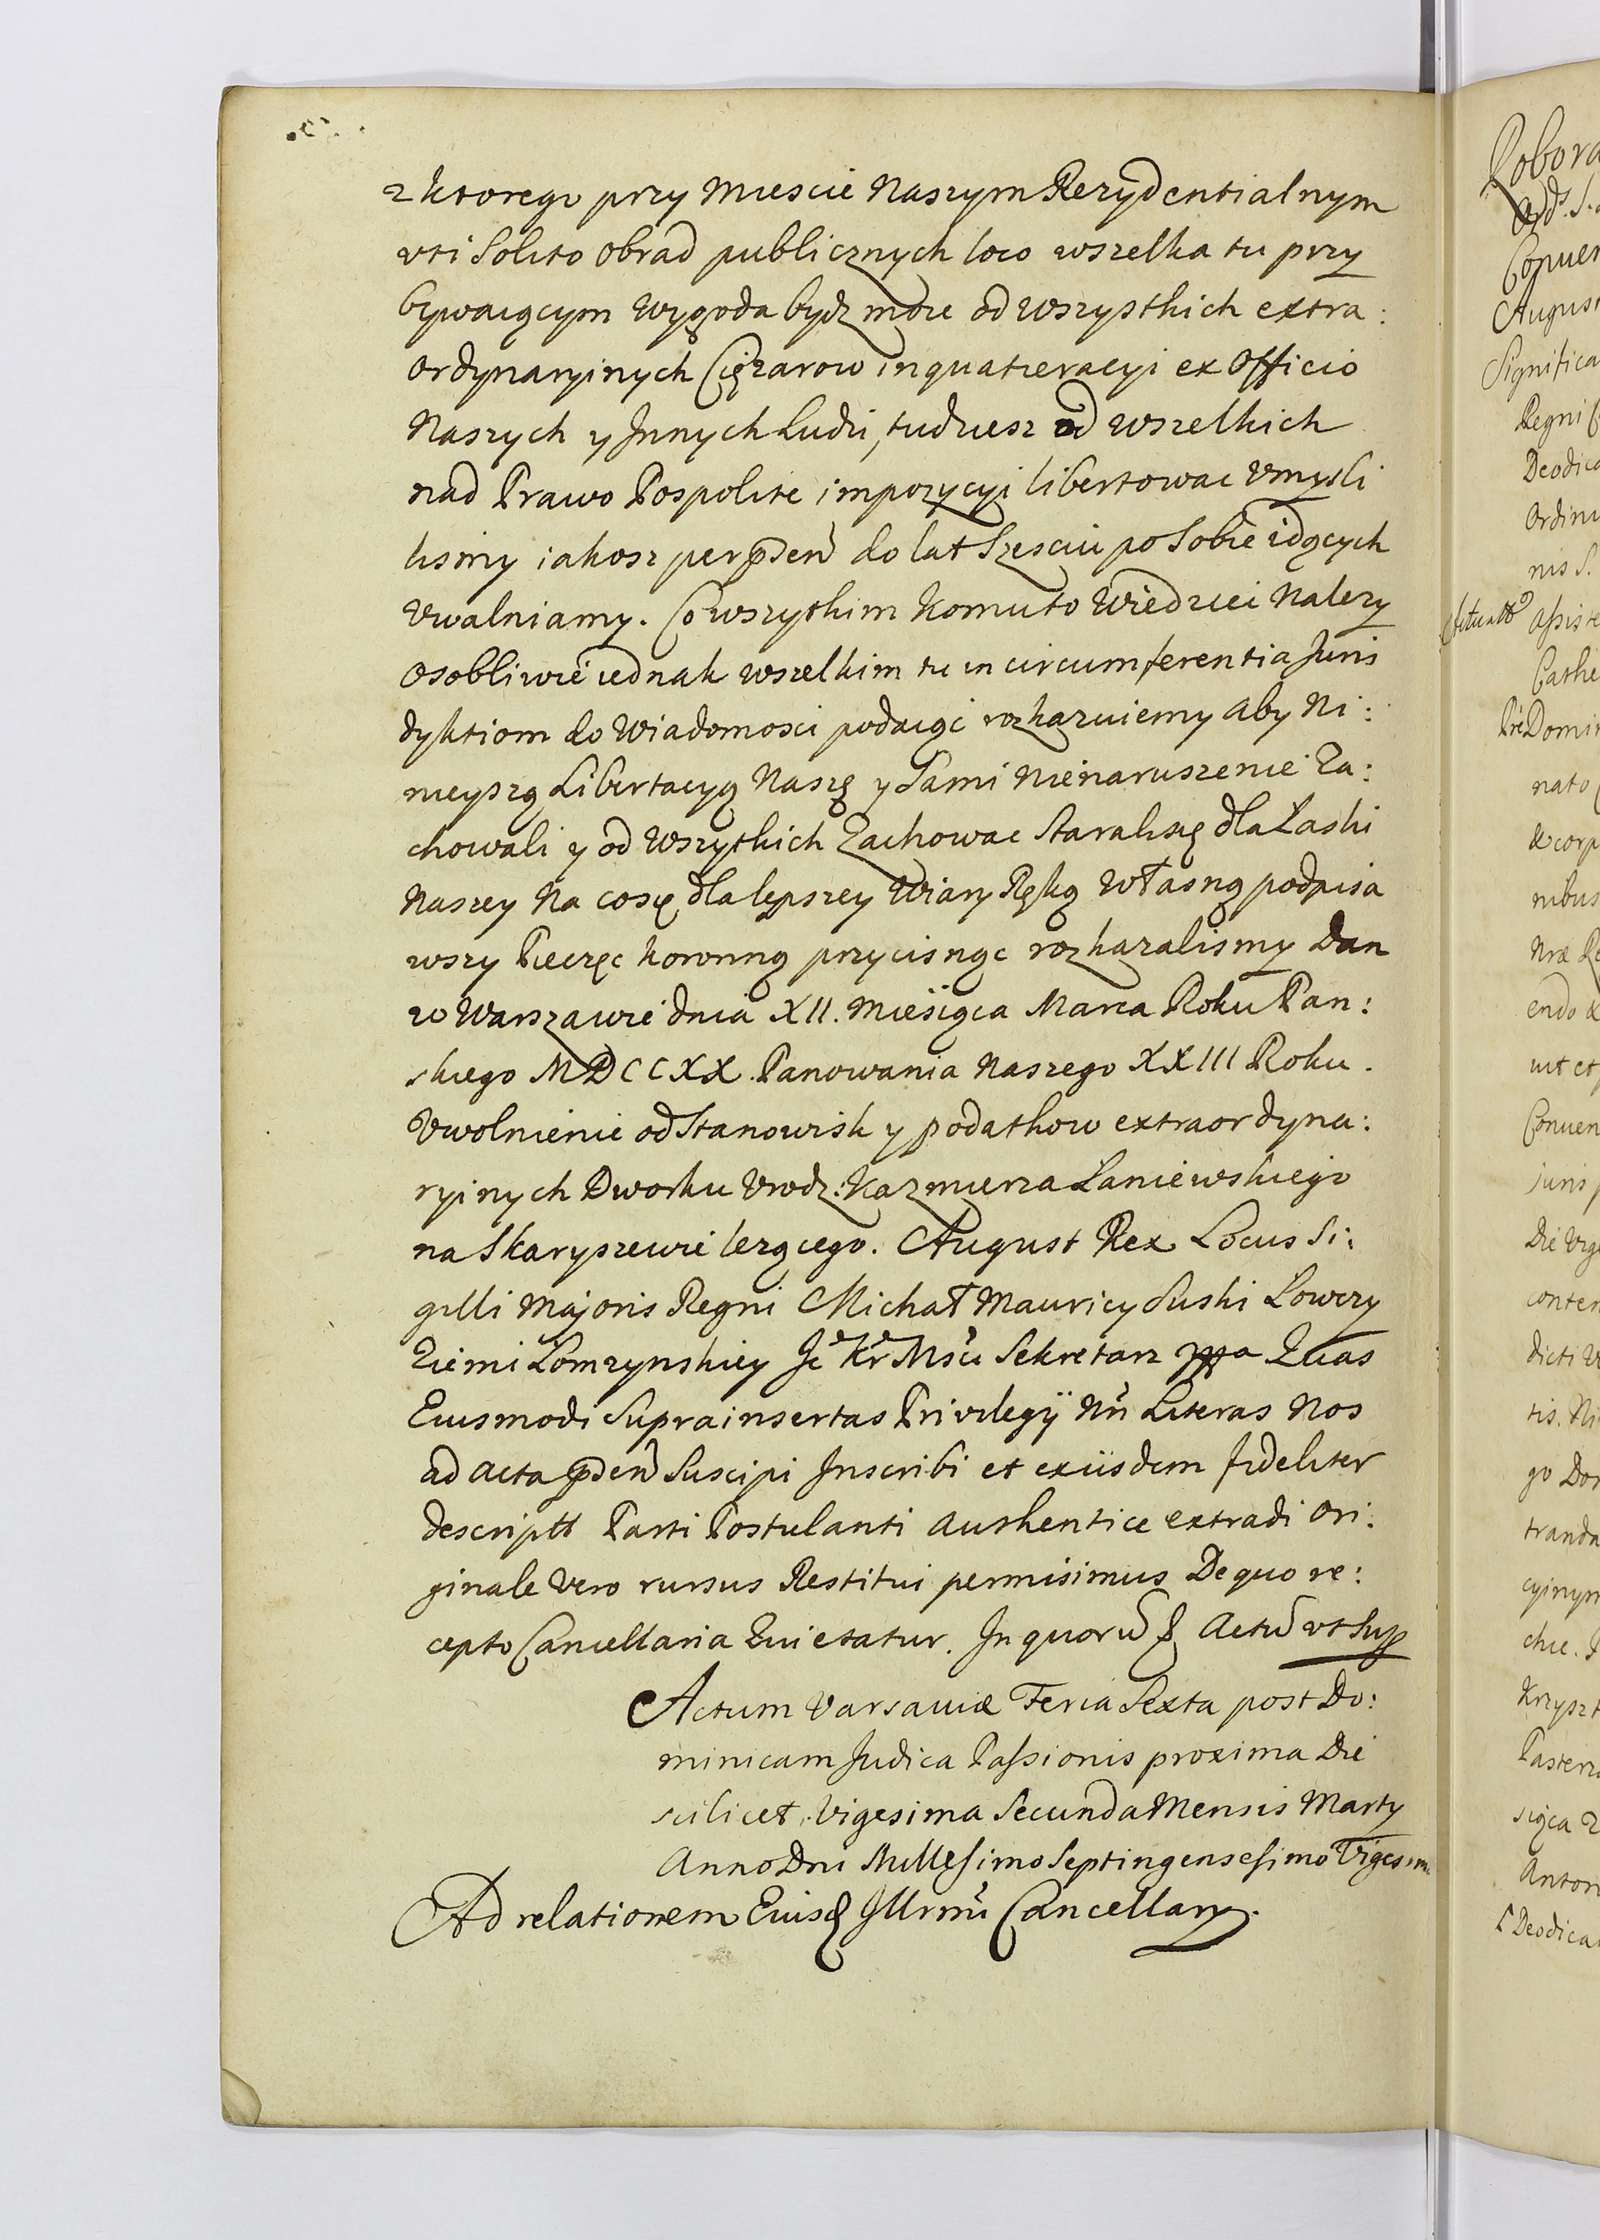 z ktorego przy Miescie Naszym Rezydentialnym
vti Solito obrad publicznych loco wszelka tu przy
bywaiącym wygoda bydz moze od wszystkich extra:
ordynaryinych Ciężarow inquateracyi ex Officio
Naszych y Innych Ludzi, tudziesz od wszelkich
nad Prawo Pospolite impozycyi libertowac Vmysli
lismy iakosz per psen do lat Szesciu po Sobie idących
Vwalniamy. Co wszytkim komu to Wiedziec Nalezy
Osobliwie iednak wszelkim tu in circumferentia Juris
dyktiom do Wiadomosci podaiąc rozkazuiemy aby Ni:
nieyszą Libertacyą Naszę y Sami Nienaruszenie Za:
chowali y od Wszytkich Zachowac Starali się dla Łaski
Naszey Na co się dla lepszey Wiary Ręką Własną podpisa
wszy Pieczęc koronną przycisnąc rozkazalismy Dan
w Warszawie dnia XII. Miesiąca Marca Roku Pan:
skiego MDCCXX. Panowania Naszego XXIII Roku.
Vwolnienie od Stanowisk y podatkow extraordyna:
ryinych Dworku Vrodz: Kazmierza Łaniewskiego
na Skaryszewie lezącego. August Rex Locus Si:
gilli Majoris Regni Michał Mauricy Suski Łowczy
Ziemi Łomzynskiey Je Kr Msci Sekretarz mpa Quas
Eiusmodi Suprainsertas Privilegÿ Nri Literas Nos
ad acta psen Suscipi Inscribi et exiisdem fideliter
descriptt Parti Postulanti authentice extradi ori:
ginale vero rursus Restitui permisimus De quo re:
cepto Cancellaria Quietatur. In quorū & Actū vt Sup
Actum Varsaviæ Feria Sexta post Do:
minicam Judica Passionis proxima Die
scilicet Vigesima Secunda Mensis Marty
Anno Dni Millesimo Septingensesimo Vigesimo
Ad relationem Eiusd Illrmi Cancellary.